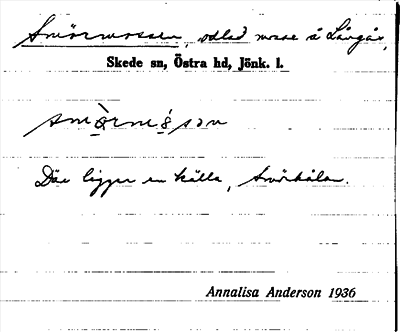 Smörmossen, odlad mosse å Långås,
Skede sn, Östra hd, Jönk. l.
smòrmósən
Där ligger en källa, Smörkälan.
Annalisa Anderson 1936